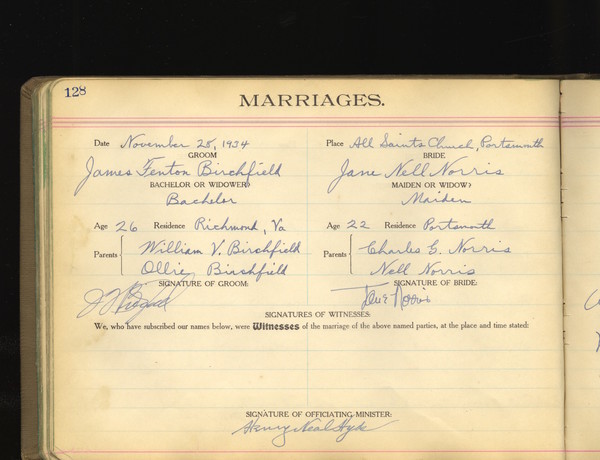 128
MARRIAGES.
Date November 28, 1934 Place All Saints Church, Portsmouth
GROOM BRIDE
James Fenton Birchfield Jane Nell Norris
BACHELOR OR WIDOWER? MAIDEN OR WIDOW?
Bachelor Maiden
Age 26 Residence Richmond, Va Age 22 Residence Portsmouth
Parents William V. Birchfield Parents Charles E. Norris
Ollie Birchfield Nell Norris
SIGNATURE OF GROOM: SIGNATURE OF BRIDE:
Jane Norris
SIGNATURES OF WITNESSES:
We, who have subscribed our names below, were Witnesses of the marriage of the above named parties, at the place and time stated:
SIGNATURE OF OFFICIATING MINISTER:
Henry Neal Hyde